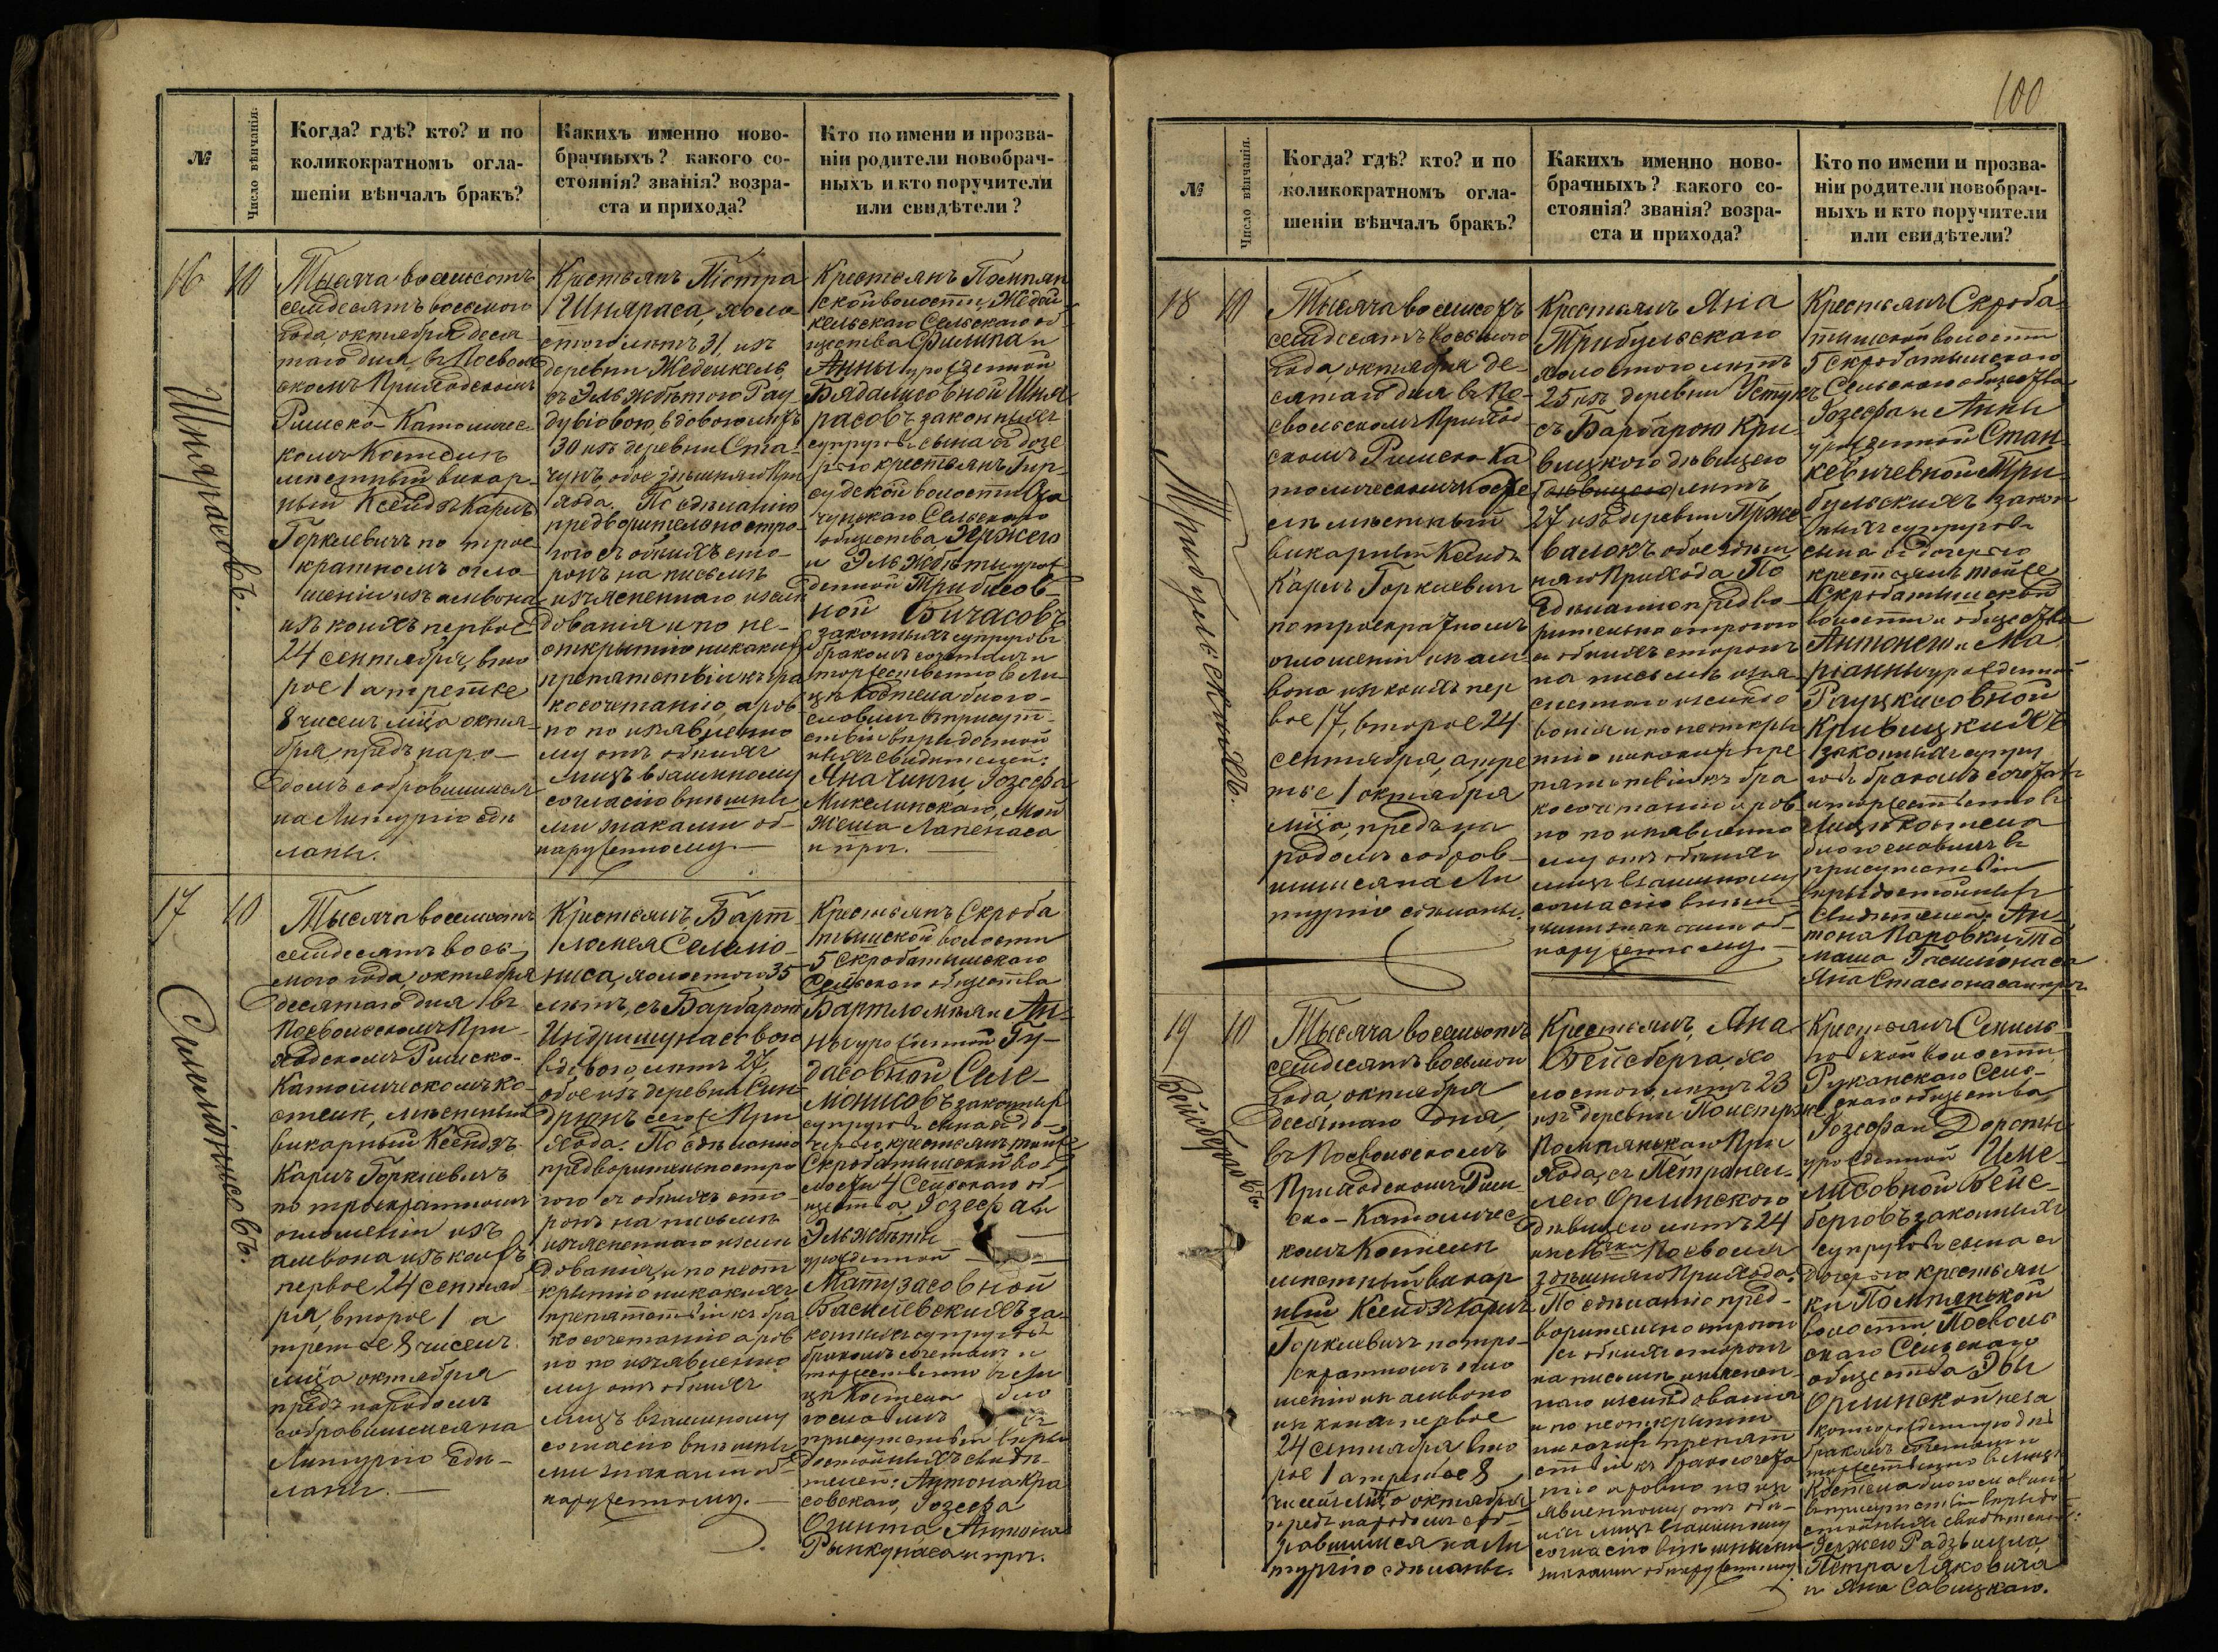 100
№
Число вѣнчанія.
Когда? гдѣ? кто? и по
коликократномъ огла-
шеніи вѣнчалъ бракъ?
Какихъ именно ново-
брачныхъ? какого со-
стоянія? званія? возра-
ста и прихода?
Кто по имени и прозва-
ніи родители новобрач-
ныхъ и кто поручители
или свидѣтели?
16
10
Тысяча восемьсотъ
семдесятъ восьмого
года октября деся-
таго дня въ Посволь-
скомъ Приходскомъ
Римско-Католичес-
комъ Костелѣ
мѣстный викар-
ный Ксендзъ Карлъ
Горкевичъ по трое-
кратномъ огла-
шеніи изъ амвона
изъ коихъ первое
24 сентября, вто
рое 1 а третье
8 чиселъ мѣца октя-
бря, предъ наро-
домъ собравшимся
на Литургію сдѣ
ланы.
Крестьянъ Пётра
Шняраса, холо-
стого лѣтъ 31, изъ
деревни
съ Эльжбѣтою Рау-
дувіовою, вдовою лѣтъ
30 изъ деревни Ста-
чунъ обое здѣшняго При
хода. По сдѣланію
предворительно стро-
гого съ обѣихъ сто-
ронъ на письмѣ
изъясненнаго изслѣ
дованія и по не-
открытію никакихъ
препятствій къ бра
косочетанію, а ров-
но по изъявленно
му отъ обѣихъ
лицъ взаимному
согласію внѣшни
ми знаками об-
наруженному.
Крестьянъ Помпян
ской волости,
Сельскаго об-
щества Филипа и
Анны урожденной
Шня
расовъ законныхъ
супруговъ сына съ доче
рью крестьянъ Гир-
судской волости
Сельскаго
общества Ержего
и Эльжбѣты урож
денной Трибисов-
ной Бичасовъ
законныхъ супруговъ
бракомъ сочеталъ и
торжественно въ ли-
цѣ Костела благо-
словилъ въ присут-
ствіи вѣры достой
ныхъ свидѣтелей:
Яна Чинчи, Іозефа
Микелинскаго,
Лапенаса
и проч.
Шнярасовъ.
17
10
Тысяча восемьсотъ
семдесятъ вось-
мого года, октября
десятаго дня въ
Посвольскомъ При-
ходскомъ Римско-
Католическомъ Ко-
стелѣ, мѣстный
викарный Ксендзъ
Карлъ Горкевичъ
по троекратномъ
оглошеніи изъ
амвона изъ коихъ
первое 24 сентяб
ря, второе 1 а
третье 8 чиселъ
мѣца октября
предъ народомъ
собравшимся на
Литургію сдѣ-
ланы.
Крестьянъ, Барт
ломея Селмio-
ниса, холостого 35
лѣтъ, съ Барбарою
Индришунасовою
вдовою лѣтъ 27,
обое изъ деревни
сего При
хода. По сдѣланію
предворительно стро
гого съ обѣихъ сто-
ронъ на письмѣ
изъясненнаго изслѣ
дованія, и по неот
крытію никакихъ
препятствій къ бра
косочетанію а ров
но по изъявленно
му отъ обѣихъ
лицъ взаимному
согласію внѣшни
ми знаками об-
наруженному.
Крестьянъ Скроба
тышской волости
5 Скробатышскаго
Сельскаго общества
Бартломѣя и Ан-
ны урожденной Гу-
дасовной Селе-
монисовъ законныхъ
супруговъ сына съ до-
черью, крестьянъ той же
Скробатышской во
лости 4 Сельскаго об
щества Іозефа и
Эльжбѣты
урожденной
Матузасовной
Василевскихъ за-
конныхъ супруговъ
бракомъ сочеталъ и
торжественно въ ли
цѣ Костела бла
гословилъ въ
присутствіи вѣры
достойныхъ свидѣ-
телей: Антона Кра
совскаго, Іозефа
Озинта Антона
Рынкунаса и проч.
18
10
Тысяча восемьсотъ
семдесятъ восьмого
года, октября де-
сятаго дня въ По-
свольскомъ Приход
скомъ Римско-Ка
толическомъ Косте
лѣ мѣстный
викарный Ксендзъ
Карлъ Горкевичъ
по троекратномъ
оглошеніи изъ ам-
вона изъ коихъ пер
вое 17, второе 24
сентября, а тре
тье 1 октября
мѣца, предъ на
родомъ собрав-
шимся на Ли
тургію сдѣланы.
Крестьянъ Яна
Трибульскаго
холостого лѣтъ
25 изъ деревни Устукъ
съ Барбарою Кри-
вицкого дѣвицею
лѣтъ
27 изъ деревни Прже
валокъ обое здѣш
няго Прихода По
сдѣланію предво-
рительно строгого
съ обѣихъ сторонъ
на письмѣ изъя-
сненнаго изслѣдо
ванія и по неткры
тію никакихъ пре
пятствій къ бра
косочетанію и ров
но по изъявленно
му отъ обѣихъ
лицъ взаимному
согласію внѣш-
ними знаками об-
наруженному.
Крестьянъ Скроба-
тишской волости
5 Скробатышскаго
Сельскаго общества
Іозефа и Анны
урожденной Стан-
кевичевной Три-
бульскихъ закон
ныхъ супруговъ
сына съ дочерью
крестьянъ той же
Скробатышской
волости и общества
Антонего и Ма-
ріанны урожденной
Рауцкисовной
Кривицкихъ
законныхъ супру
говъ бракомъ сочеталъ
и торжественно въ
лицѣ Костела
благословилъ въ
присутствіи
вѣры достойныхъ
свидѣтелей: Ан-
тона Паровки, То
маша Гасилюнаса
Яна Стасюнаса и проч
Трибульскихъ.
19
10
Тысяча восемьсотъ
семдесятъ восьмого
года, октября
десятаго дня,
въ Посвольскомъ
Приходскомъ Рим-
ско-Католичес
комъ Костелѣ
мѣстный викар
ный Ксендзъ Карлъ
Горкевичъ по трое-
кратномъ огло
шеніи изъ амвона
изъ коихъ первое
24 сентября, вто
рое 1 а третье 8
чиселъ мѣца октября
предъ народомъ соб-
равшимся на Ли
тургію сдѣланы.
Крестьянъ, Яна
Вейсберга, хо
лостого, лѣтъ 23
изъ деревни
Помпянькаго При
хода, съ Петронел-
лею Орлинского
дѣвицею лѣтъ 24
изъ мѣчка Посволя
здѣшняго Прихода.
По сдѣланію пред-
ворительно строгого
съ обѣихъ сторонъ
на письмѣ изъяснен-
наго изслѣдованія
и по неоткрытію
никакихъ препят
ствій къ бракосочета
нію а ровно по изъ
явленному отъ обѣ-
ихъ лицъ взаимному
согласію внѣшними
знаками обнаруженному.
Крестьянъ
волости
Сель-
скаго общества
Іозефа и Дороты
урожденной
Вейс-
берговъ законныхъ
супруговъ сына съ
дочерью крестьян
ки Помпянской
волости Посволь
скаго Сельскаго
общества Эвы
Орлинской неза
конорожденную
бракомъ сочеталъ и
торжественно въ лицѣ
Костела благословилъ
въ присутствіи вѣры до-
стойныхъ свидѣтелей:
Ержего Радзвила,
Петра Ляховича
и Яна Савицкаго.
Вейсберговъ